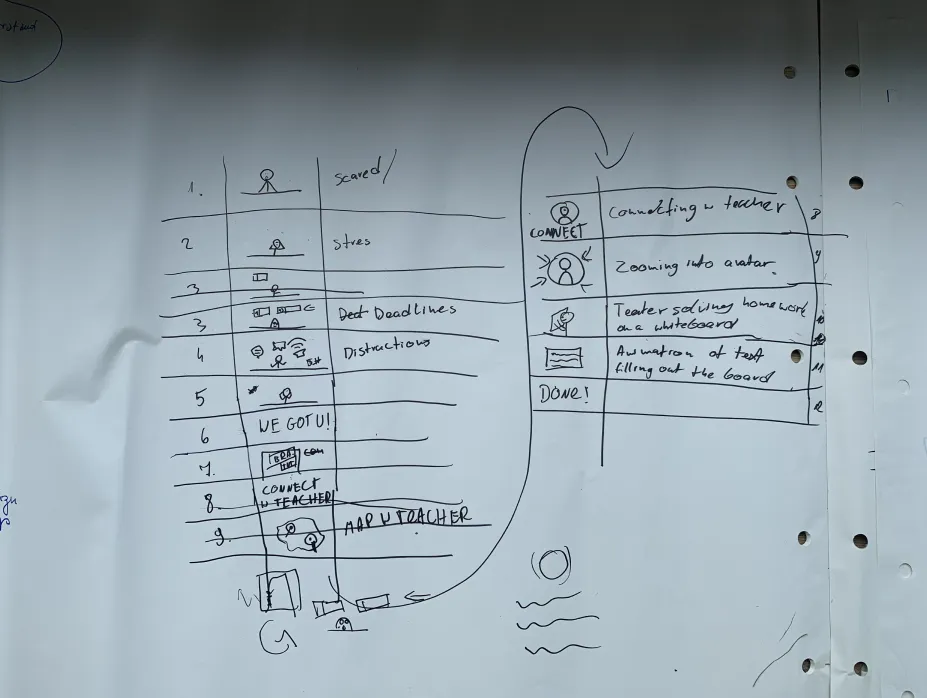 1. scared/
2 stres
3
3 Deat Deadlines
4 Distractions
5
6 WE GOT U!
7. .com
8. CONNECT
W TEACHER
9. MAP W TEACHER
CONNECT Connecting w teacher 8
Zooming into avatar. 9
Teater solving homework
on a whiteboard 10
Animation of text 11
filling out the board
DONE! 12